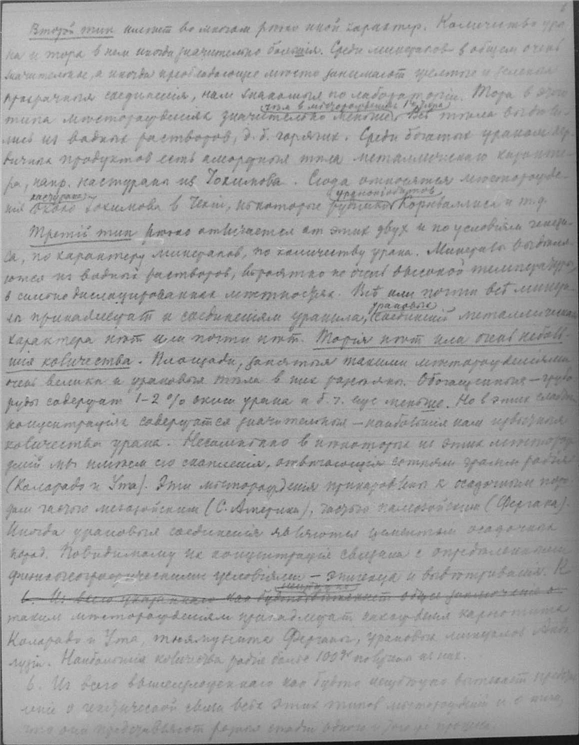 Второй тип имеет во многом резко иной характер. Количество ура
на и тора в нем иногда значительно большия. Среди минералов в общем очень
значительное, а иногда преобладающее место занимают
прозрачныя соединения, нам знакомыя по лаборатории. Тора в этом
типа месторождениях значительно меньше. Все тела выдели
лись из водных растворов, д. б. горячих. Среди богатых ураном пер
вичных продуктов есть аморфныя тела металлического характе
ра, напр. настуран из Иохимова. Сюда относятся месторожде
ния Иохимова в Чехии, некоторые рудники Корнваллиса и т.д.
Третий тип резко отличается от этих двух и по условиям генези
са, по характеру минералов, по количеству урана. Минералы выделя
ются из водных растворов, вероятно не очень высокой температуры,
в сильно дислоцированных местностях. Все или почти все минера
лы принадлежат к соединениям уранила, соединений металлическаго
характера нет или почти нет. Тория нет или очень неболь
шия количества. Площади, занятыя такими месторождениями
очень велики и урановыя тела в них разсеяны. Обогащенныя
руды содержат 1-2% окиси урана и б. ч. еще меньше. Но в этих слабых
концентрациях содержатся значительныя - наибольшия нам известныя
количества урана. Несомненно в некоторых из этих месторож
дений мы имеем его скопления, отвечающия сотням грамм радия
(Колорадо и Ута). Эти месторождения приурочены к осадочным поро
дам частью мезозойским (С. Америка), частью палеозойским (Фергана).
Иногда урановыя соединения являются цементом осадочных
пород. Повидимому их концентрация связана с определенными
физикогеографическими условиями - и выветривания. К
таким месторождениям принадлежат нахождения карнотита
Колорадо и Ута, тюямунита Ферганы, урановых минералов
Наибольшия количества радия более 100 gr получены из них.
6. Из всего вышеприведеннаго как будто вытекает
о генетической связи всех этих типов месторождений и о том,
что они представляют разныя стадии одного и того же процесса.